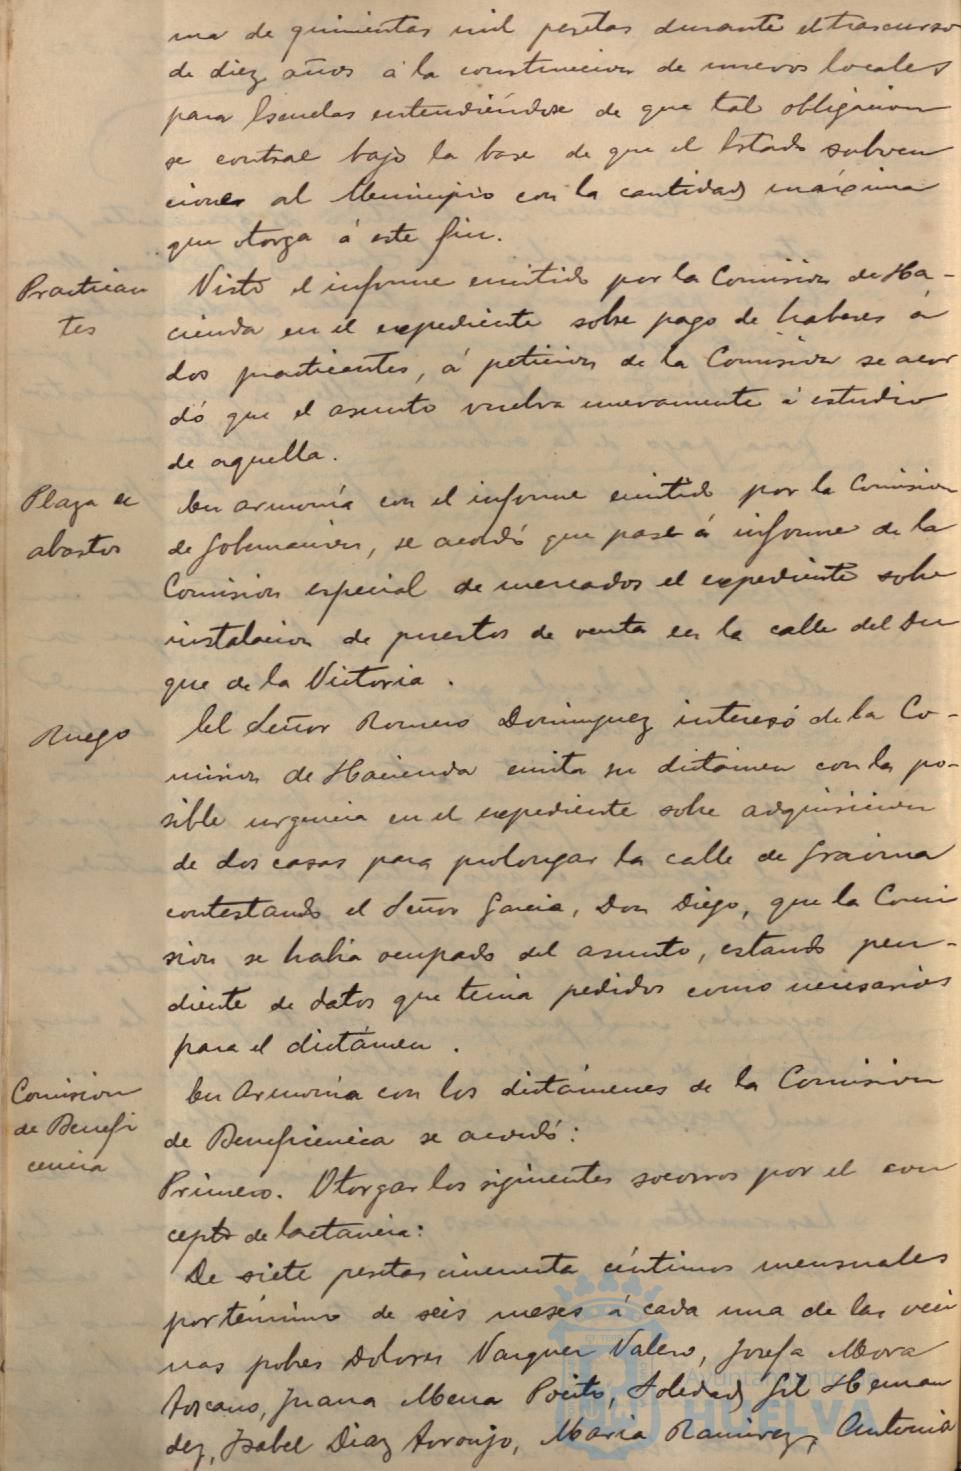 ma de quinientas mil pesetas durante el trascurso
de diez años á la construccion de nuevos locales
para Escuelas entendiéndose de que tal obligacion
se contrae bajo la base de que el Estado subven
cione al Municipio con la cantidad máxima
que otorga á este fin.
Practican
tes
Visto el informe emitido por la Comision de Ha-
cienda en el expediente sobre pago de haberes á
dos practicantes, á peticion de la Comision se acor
dó que el asunto vuelva nuevamente á estudio
de aquella.
Plaza de
abastos
En armonía con el informe emitido por la Comision
de Gobernacion, se acordó que pase á informe de la
Comision especial de mercados el expediente sobre
instalacion de puestos de venta en la calle del Du
que de la Victoria.
Ruego
El Señor Romero Dominguez interesó de la Co-
mision de Hacienda emita su dictámen con la po-
sible urgencia en el expediente sobre adquisicion
de dos casas para prolongar la calle de Graina
contestando el Señor Garcia, Don Diego, que la Comi
sion se habia ocupado del asunto, estando pen-
diente de datos que tenia pedidos como necesarios
para el dictámen.
Comision
de Benefi
cencia
En armonía con los dictámenes de la Comision
de Beneficencia se acordó:
Primero. Otorgar los siguientes socorros por el con
cepto de lactancia:
De siete pesetas cincuenta céntimos mensuales
por término de seis meses á cada una de las veci
nas pobres Dolores Vazquez Valero, Josefa Mora
Toscano, Juana Mena Pocito, Soledad Gil Hernan
dez, Isabel Diaz Araujo, Maria Ramirez, Antonia
Ayuntamiento de
HUELVA